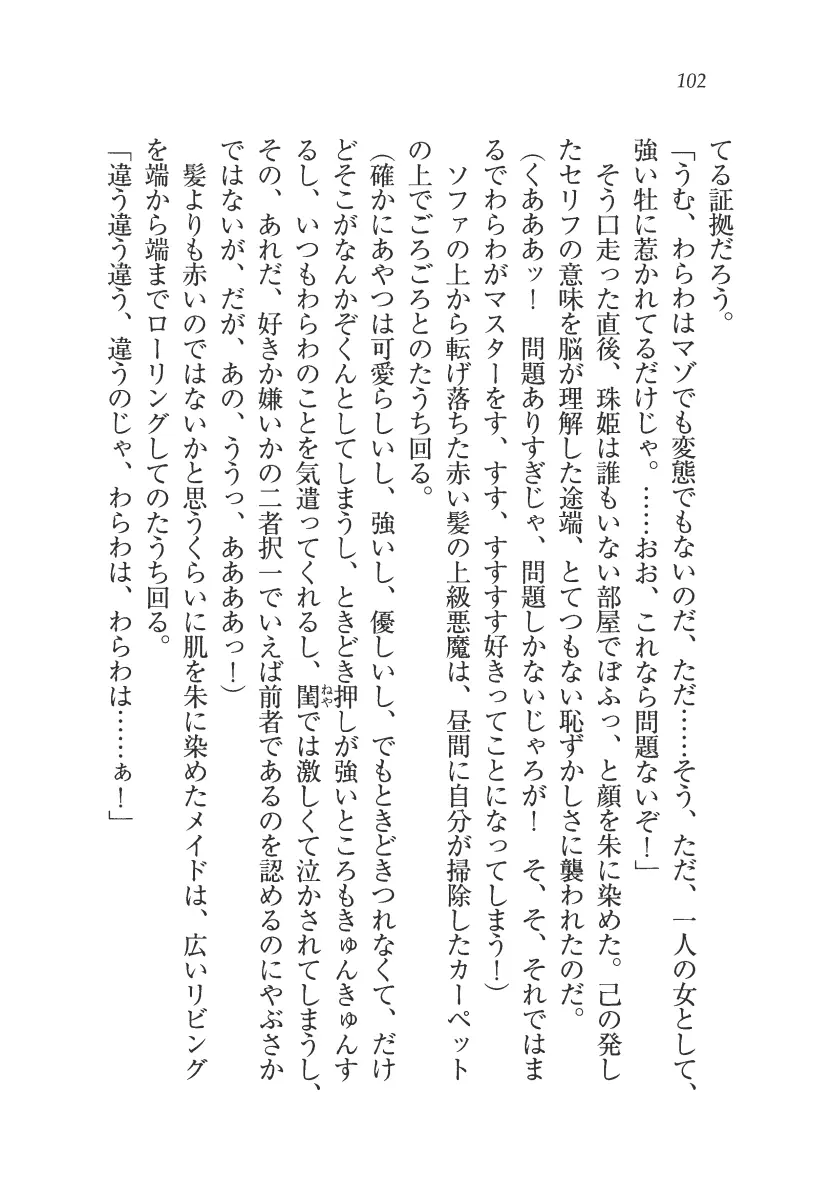 102
てる証拠だろう。
「うむ、わらわはマゾでも変態でもないのだ、ただ……そう、ただ、一人の女として、
強い牡に惹かれてるだけじゃ。……おお、これなら問題ないぞ！」
　そう口走った直後、珠姫は誰もいない部屋でぼふっ、と顔を朱に染めた。己の発し
たセリフの意味を脳が理解した途端、とてつもない恥ずかしさに襲われたのだ。
（くあああッ！　問題ありすぎじゃ、問題しかないじゃろが！　そ、そ、それではま
るでわらわがマスターをす、すす、すすすす好きってことになってしまう！）
　ソファの上から転げ落ちた赤い髪の上級悪魔は、昼間に自分が掃除したカーペット
の上でごろごろとのたうち回る。
（確かにあやつは可愛らしいし、強いし、優しいし、でもときどきつれなくて、だけ
どそこがなんかぞくんとしてしまうし、ときどき押しが強いところもきゅんきゅんす
るし、いつもわらわのことを気遣ってくれるし、閨ねやでは激しくて泣かされてしまうし、
その、あれだ、好きか嫌いかの二者択一でいえば前者であるのを認めるのにやぶさか
ではないが、だが、あの、ううっ、ああああっ！）
　髪よりも赤いのではないかと思うくらいに肌を朱に染めたメイドは、広いリビング
を端から端までローリングしてのたうち回る。
「違う違う違う、違うのじゃ、わらわは、わらわは……ぁ！」